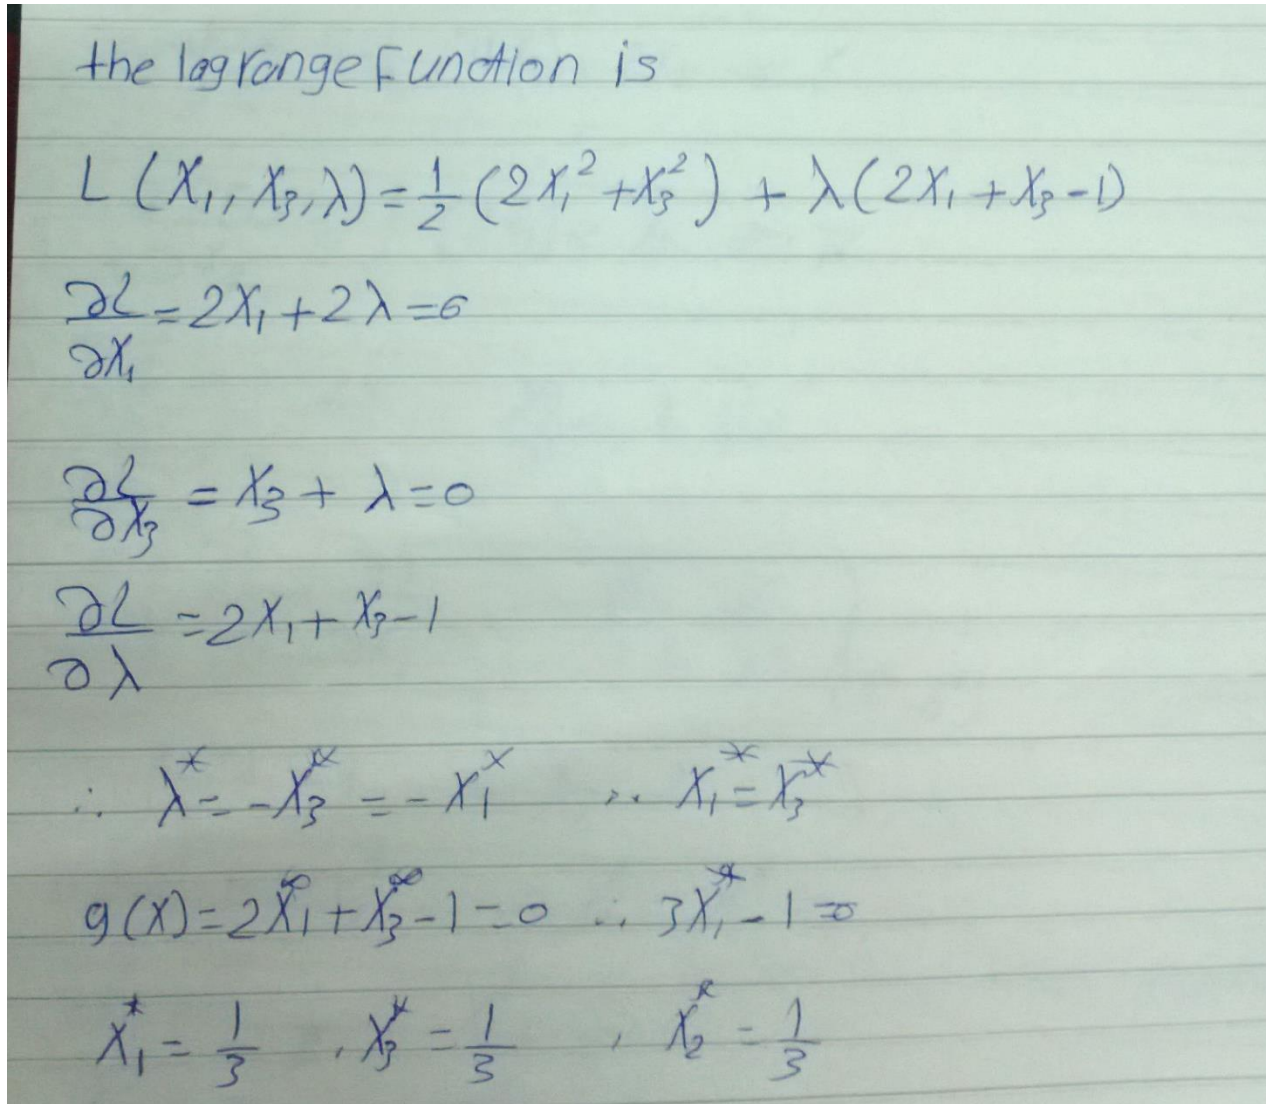 the lagrange Function is
L (X₁, X₃, λ) = 1/2 (2X₁² + X₃²) + λ(2X₁ + X₃ - 1)
∂L/∂X₁ = 2X₁ + 2λ = 0
∂L/∂X₃ = X₃ + λ = 0
∂L/∂λ = 2X₁ + X₃ - 1
∴ λ* = -X₃* = -X₁* ∴ X₁* = X₃*
g(X) = 2X₁* + X₃* - 1 = 0 ∴ 3X₁* - 1 = 0
X₁* = 1/3 , X₃* = 1/3 , X₂* = 1/3